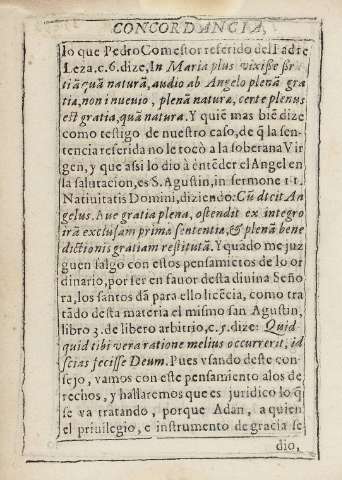 CONCORDANCIA,
lo que Pedro Comestor referido del Padre
Leza. c. 6. dize, In Maria plus vixisse gra
tiã quã naturã, audio ab Angelo plenã gra
tia, non inuenio, plenã natura, certe plenus
est gratia, quã natura. Y quiẽ mas biẽ dize
como testigo de nuestro caso, de q̃ la sen-
tencia referida no le tocò a la soberana Vir
gen, y que assi lo dio à entẽder el Angel en
la salutacion, es S. Agustin, in sermone 11.
Natiuitatis Domini, diziendo: Cũ dicit An
gelus. Aue gratia plena, ostendit ex integro
irã exclusam prima sententiæ, & plenã bene
dictionis gratiam restitutã. Y quãdo me juz
guen salgo con estos pensamiẽtos de lo or
dinario, por ser en fauor desta diuina Seño
ra, los santos dã para ello licẽcia, como tra
tãdo desta materia el mismo san Agustin,
libro 3. de libero arbitrio, c. 5. dize: Quid-
quid tibi vera ratione melius occurrerit, id
scias fecisse Deum. Pues vsando deste con-
sejo, vamos con este pensamiento a los de
rechos, y hallaremos que es juridico lo q̃
se va tratando, porque Adan, a quien
el priuilegio, e instrumento de gracia se
dio,